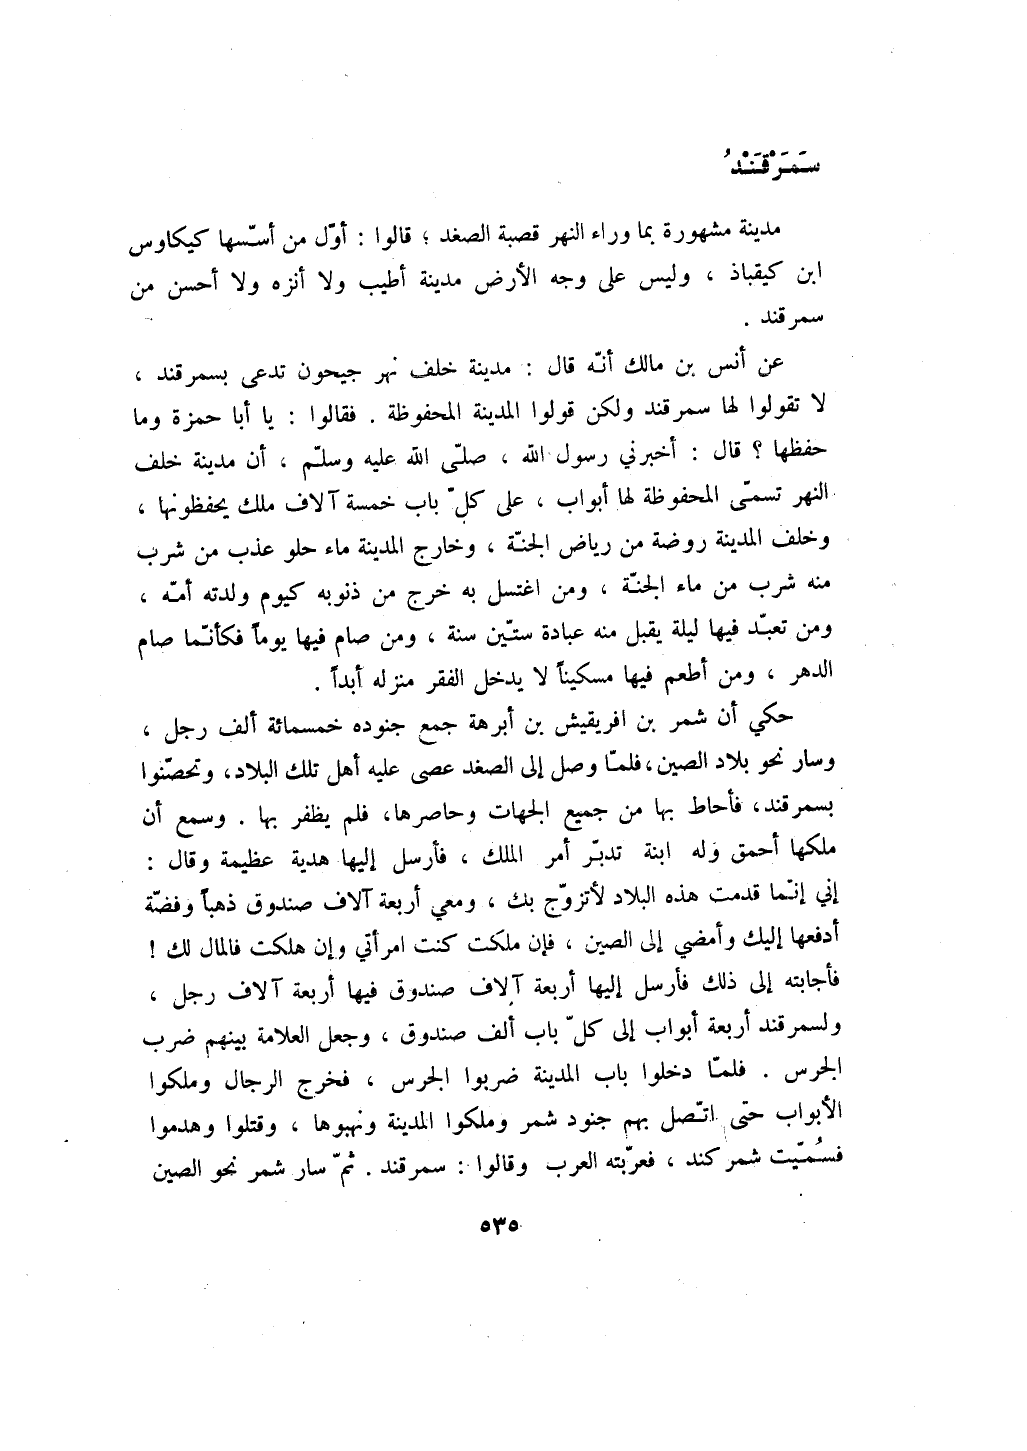 سَمَرْقَنْدُ
مدينة مشهورة بما وراء النهر قصبة الصغد ؛ قالوا : أوّل من أسّسها كيكاوس
ابن كيقباذ ، وليس على وجه الأرض مدينة أطيب ولا أنزه ولا أحسن من
سمرقند .
عن أنس بن مالك أنّه قال : مدينة خلف نهر جيحون تدعى بسمرقند ،
لا تقولوا لها سمرقند ولكن قولوا المدينة المحفوظة . فقالوا : يا أبا حمزة وما
حفظها ؟ قال : أخبرني رسول الله ، صلّى الله عليه وسلّم ، أن مدينة خلف
النهر تسمّى المحفوظة لها أبواب ، على كلّ باب خمسة آلاف ملك يحفظونها ،
وخلف المدينة روضة من رياض الجنّة ، وخارج المدينة ماء حلو عذب من شرب
منه شرب من ماء الجنّة ، ومن اغتسل به خرج من ذنوبه كيوم ولدته أمّه ،
ومن تعبّد فيها ليلة يقبل منه عبادة ستّين سنة ، ومن صام فيها يوماً فكأنّما صام
الدهر ، ومن أطعم فيها مسكيناً لا يدخل الفقر منزله أبداً .
حكي أن شمر بن افريقيش بن أبرهة جمع جنوده خمسمائة ألف رجل ،
وسار نحو بلاد الصين، فلمّا وصل إلى الصغد عصى عليه أهل تلك البلاد، وتحصّنوا
بسمرقند، فأحاط بها من جميع الجهات وحاصرها، فلم يظفر بها . وسمع أن
ملكها أحمق وله ابنة تدبّر أمر الملك ، فأرسل إليها هدية عظيمة وقال :
إني إنّما قدمت هذه البلاد لأتزوّج بك ، ومعي أربعة آلاف صندوق ذهباً وفضّة
أدفعها إليك وأمضي إلى الصين ، فإن ملكت كنت امرأتي وإن هلكت فالمال لك !
فأجابته إلى ذلك فأرسل إليها أربعة آلاف صندوق فيها أربعة آلاف رجل ،
ولسمرقند أربعة أبواب إلى كلّ باب ألف صندوق ، وجعل العلامة بينهم ضرب
الجرس . فلمّا دخلوا باب المدينة ضربوا الجرس ، فخرج الرجال وملكوا
الأبواب حتى اتّصل بهم جنود شمر وملكوا المدينة ونهبوها ، وقتلوا وهدموا
فسُمّيت شمركند ، فعرّبته العرب وقالوا : سمرقند . ثمّ سار شمر نحو الصين
٥٣٥